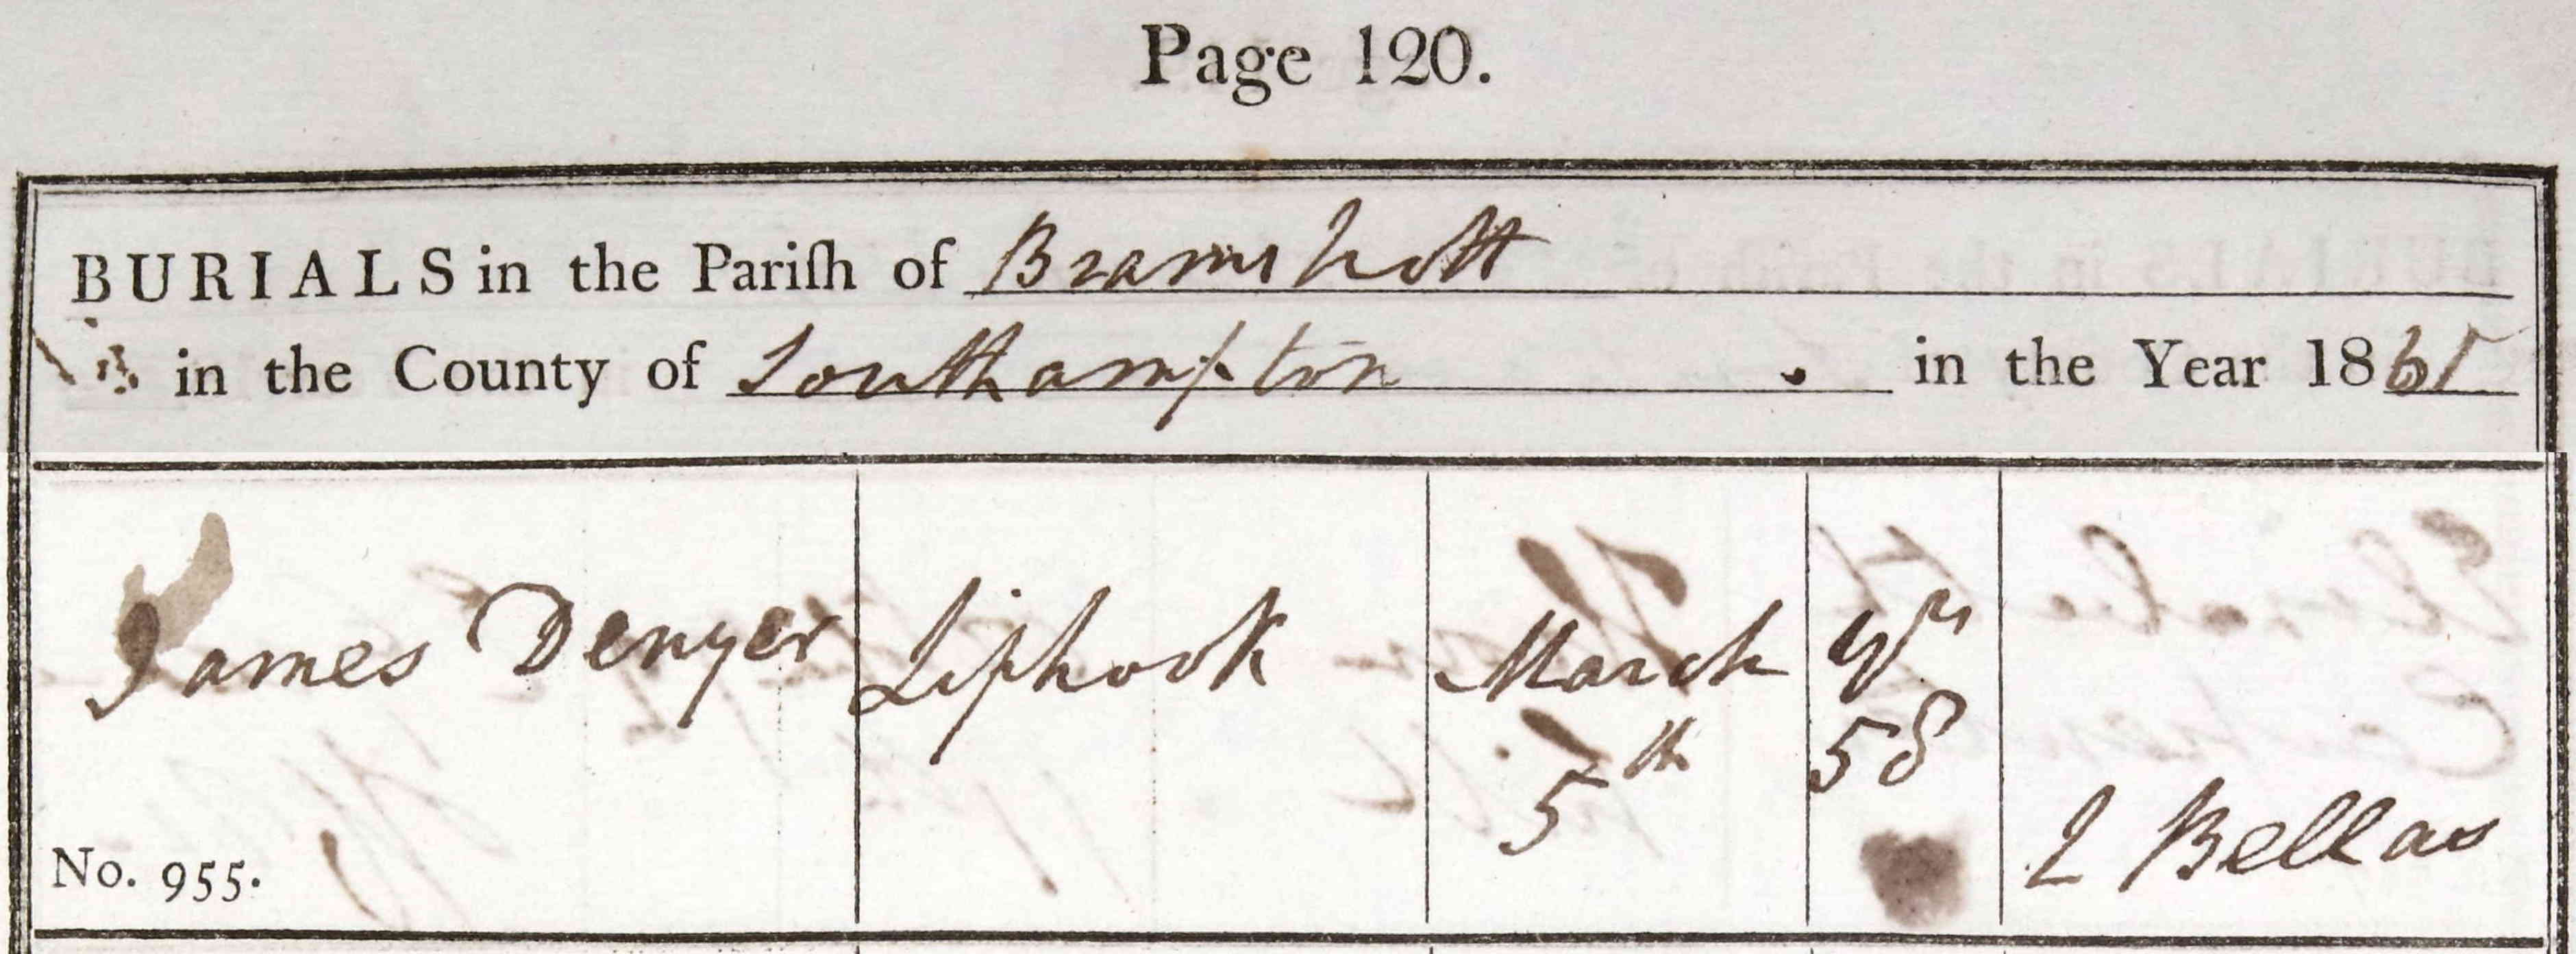 Page 120.
BURIALS in the Pariſh of Bramshott
in the County of Southampton in the Year 1865
James Denyer Liphook March 5th yrs 58 L Bellas
No. 955.